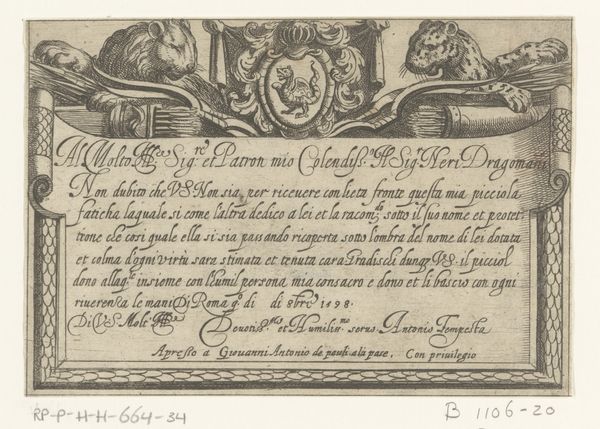 Al Molto Ill.re Sig.re et Patron mio Colendiss.o Il Sig.r Neri Dragomani
Non dubito che V S Non sia per ricevere con lieta fronte questa mia picciola
faticha laquale si come l'altra dedico a lei et la racom.do sotto il suo nome et protet-
tione che cosi quale ella si sia passando ricoperta sotto l'ombra del nome di lei dotata
et colma d'ogni virtu sara stimata et tenuta cara Gradischi dunq, V S il picciol
dono alla q.le insieme con l'humil persona mia consacro e dono et li bascio con ogni
riverenza le mani Di Roma di di 8bre 1598.
Di V S Molt. Ill.re Devotiss.mo et Humiliss.mo servo Antonio Tempesta
Apresso a Giovanni Antonio de pauli alà pase. Con privilegio
RP-P-H-H-664-34
B 1106-20